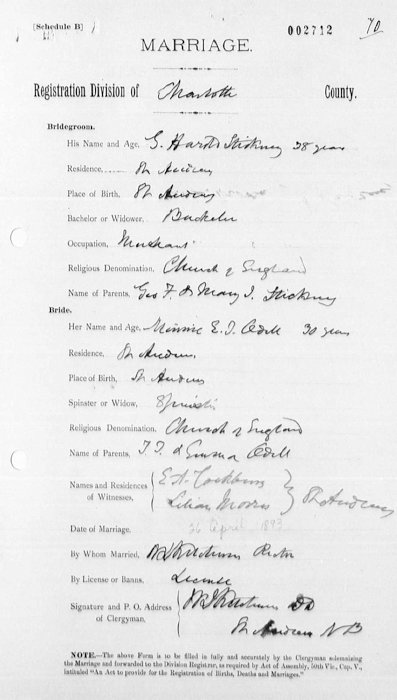 [Schedule B]
002712 70
MARRIAGE.
Registration Division of Charlotte County.
Bridegroom.
His Name and Age, G. Harold Stickney 38 years
Residence, St Andrews
Place of Birth, St Andrews
Bachelor or Widower, Bachelor
Occupation, Merchant
Religious Denomination, Church of England
Name of Parents, Geo F. & Mary I. Stickney
Bride.
Her Name and Age, Minnie E. T. Odell 30 years
Residence, St Andrews
Place of Birth, St Andrews
Spinster or Widow, Spinster
Religious Denomination, Church of England
Name of Parents, T. T. & Emma Odell
Names and Residences of Witnesses, E A Cockburn
Lilian Morris St Andrews
Date of Marriage. 26 April 1893
By Whom Married, Rector
By License or Banns, License
Signature and P. O. Address of Clergyman. DD
St Andrews NB
NOTE.—The above Form is to be filled in fully and accurately by the Clergyman solemnizing
the Marriage and forwarded to the Division Registrar, as required by Act of Assembly, 50th Vic., Cap. V.,
intituled "An Act to provide for the Registration of Births, Deaths and Marriages."